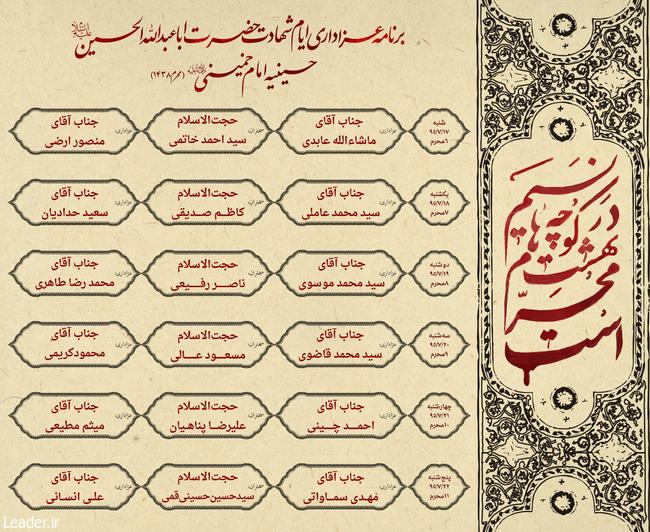 برنامه عزاداری ایام شهادت حضرت اباعبدالله الحسین علیه‌السلام
حسینیه امام خمینی (محرم ۱۴۳۸)
نسیم
در کوچه های
بهشت
محرم
است
شنبه
۹۵/۷/۱۷
۶محرم
جناب آقای
ماشاءالله عابدی
سخنران:
حجت‌الاسلام
سید احمد خاتمی
عزاداری:
جناب آقای
منصور ارضی
یکشنبه
۹۵/۷/۱۸
۷محرم
جناب آقای
سید محمد عاملی
سخنران:
حجت‌الاسلام
کاظم صدیقی
عزاداری:
جناب آقای
سعید حدادیان
دوشنبه
۹۵/۷/۱۹
۸محرم
جناب آقای
سید محمد موسوی
سخنران:
حجت‌الاسلام
ناصر رفیعی
عزاداری:
جناب آقای
محمد رضا طاهری
سه‌شنبه
۹۵/۷/۲۰
۹محرم
جناب آقای
سید محمد قاضوی
سخنران:
حجت‌الاسلام
مسعود عالی
عزاداری:
جناب آقای
محمودکریمی
چهارشنبه
۹۵/۷/۲۱
۱۰محرم
جناب آقای
احمد چینی
سخنران:
حجت‌الاسلام
علیرضا پناهیان
عزاداری:
جناب آقای
میثم مطیعی
پنج‌شنبه
۹۵/۷/۲۲
۱۱محرم
جناب آقای
مهدی سماواتی
سخنران:
حجت‌الاسلام
سیدحسین‌حسینی‌قمی
عزاداری:
جناب آقای
علی انسانی
Leader.ir